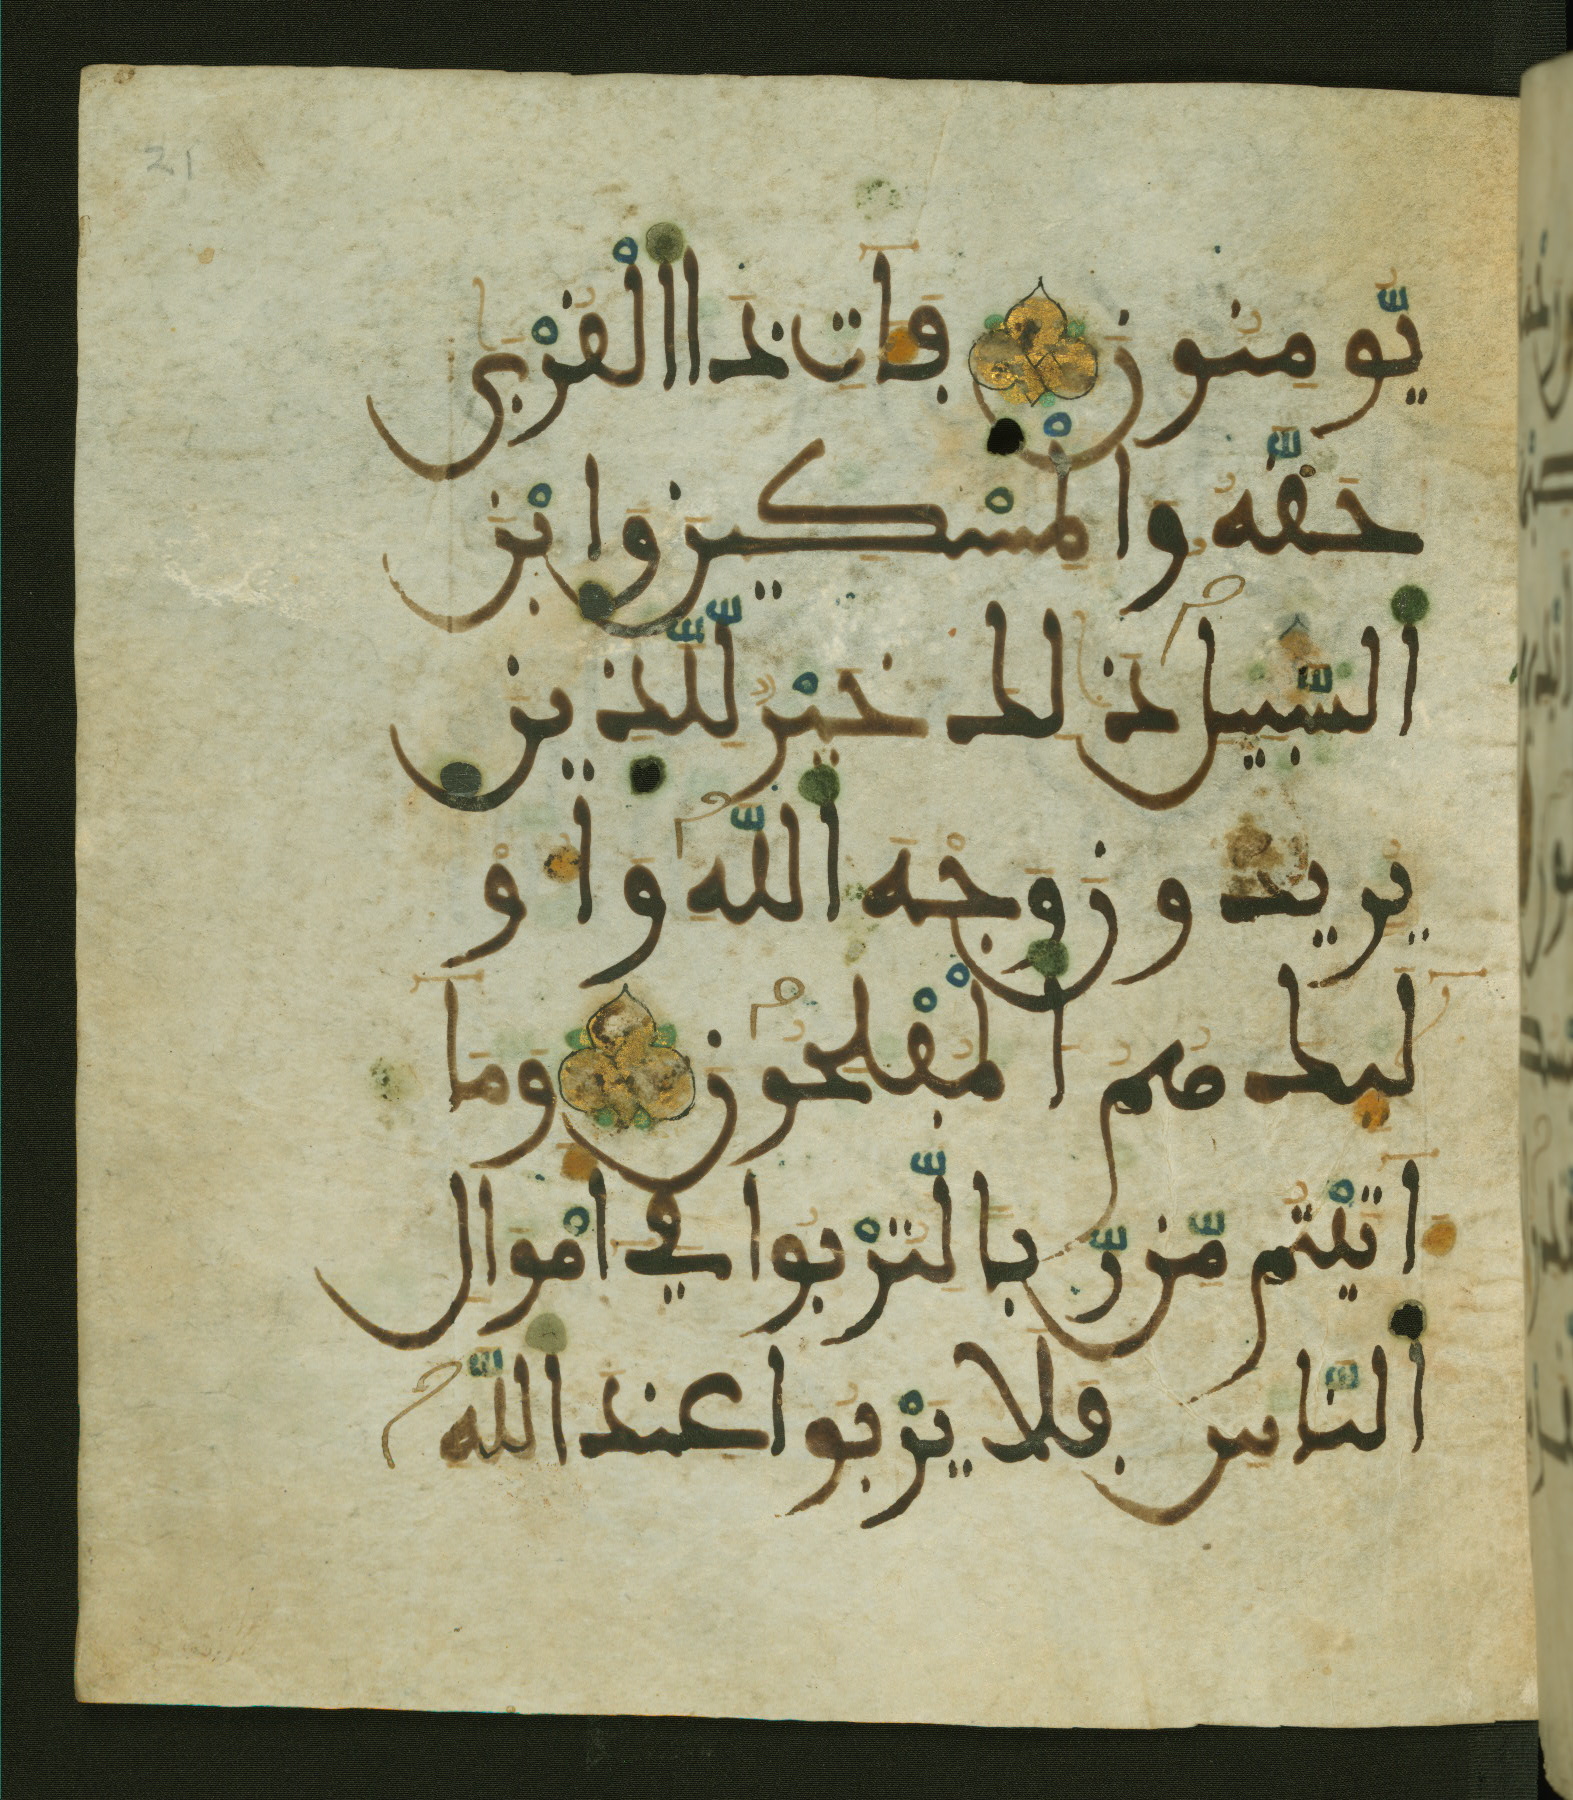 21
يُّومِنُونَ فَـَٔاتِ ذَا اَ۬لْقُرْبَىٰ
حَقَّهُۥ وَالْمِسْكِينَ وَابْنَ
اَ۬لسَّبِيلِ ذَٰلِكَ خَيْرٞ لِّلَّذِينَ
يُرِيدُونَ وَجْهَ اَ۬للَّهِ وَأُوْ
لَٰٓئِكَ هُمُ اُ۬لْمُفْلِحُونَ وَمَآ
ءَاتَيْتُم مِّن رِّباٗ لِّتُرْبُواْ فِےٓ أَمْوَٰلِ
اِ۬لنَّاسِ فَلَا يَرْبُواْ عِندَ اَ۬للَّهِ